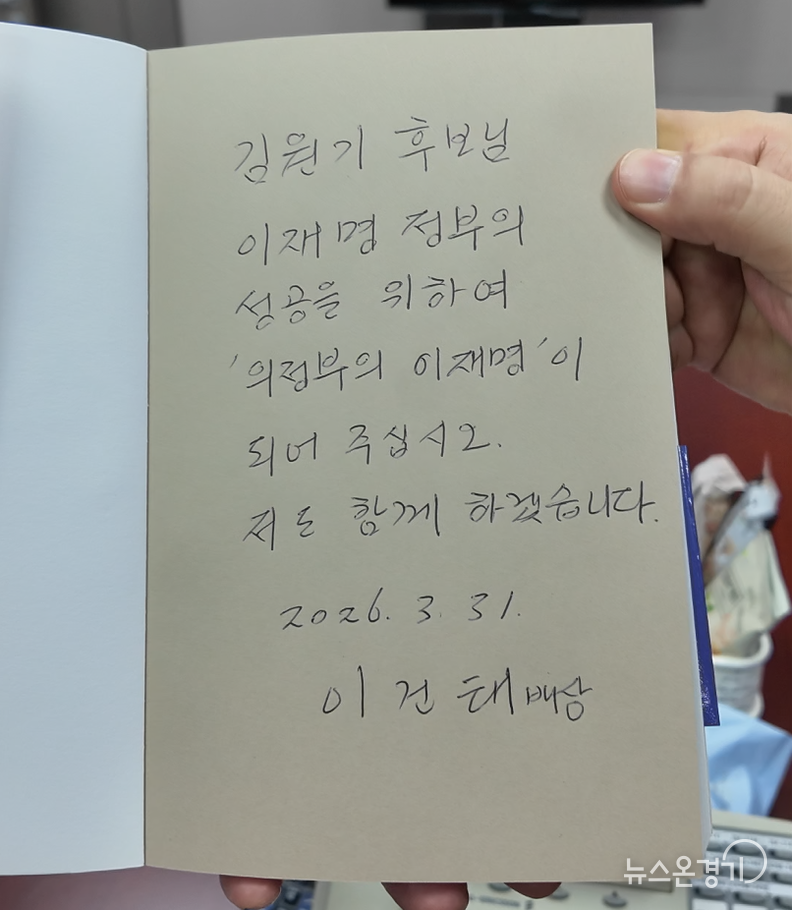 김원기 후보님
이재명 정부의
성공을 위하여
'의정부의 이재명'이
되어 주십시오.
저도 함께 하겠습니다.
2026. 3. 31.
이건태 배상
뉴스온경기